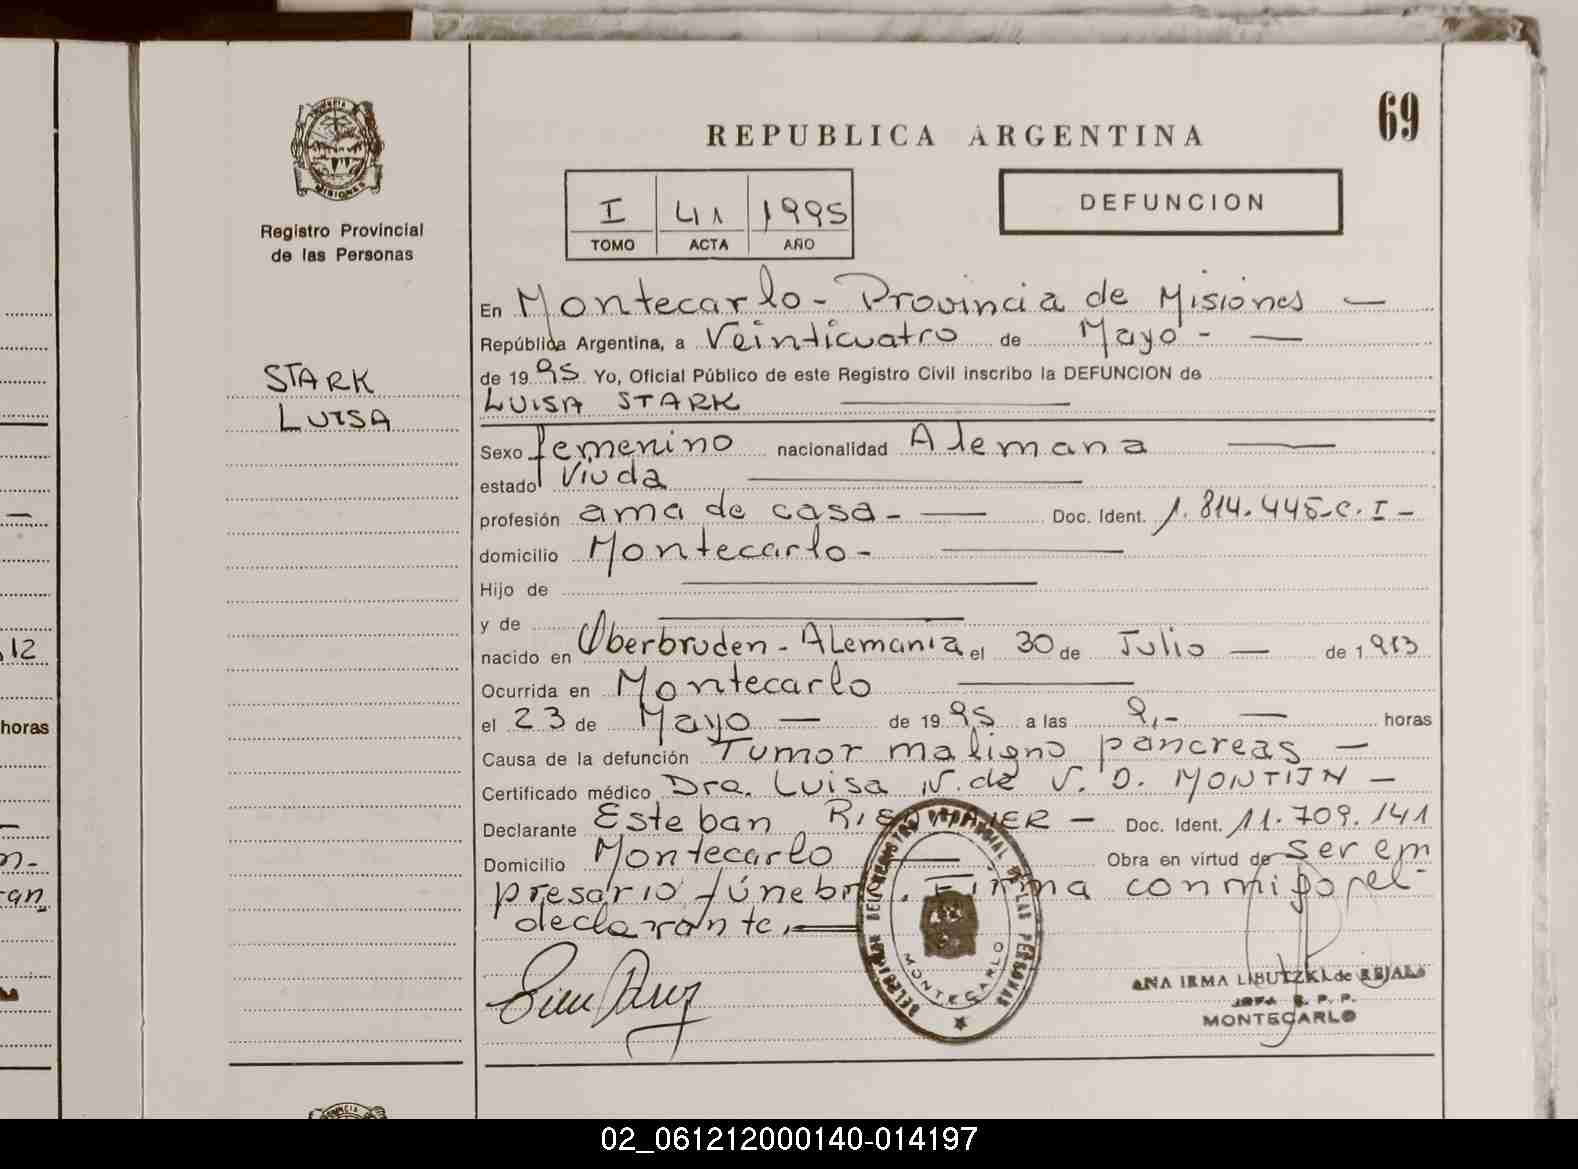 69
REPUBLICA ARGENTINA
MISIONES
Registro Provincial
de las Personas
I 41 1995
TOMO ACTA AÑO
DEFUNCION
STARK
LUISA
En Montecarlo - Provincia de Misiones —
República Argentina, a Veinticuatro de Mayo - —
de 1995 Yo, Oficial Público de este Registro Civil inscribo la DEFUNCION de
LUISA STARK
Sexo femenino nacionalidad Alemana
estado Viuda
profesión ama de casa - — Doc. Ident. 1.814.445-C.I-
domicilio Montecarlo -
Hijo de
y de
nacido en Oberbruden - Alemania el 30 de Julio — de 1913
Ocurrida en Montecarlo
el 23 de Mayo — de 1995 a las 9,- — horas
Causa de la defunción Tumor maligno pancreas —
Certificado médico Dra. Luisa N. de V. D. MONTIJN —
Declarante Esteban — Doc. Ident. 11.709.141
Domicilio Montecarlo Obra en virtud de ser em
presario fúnebre. Firma conmigo el
declarante.
DELEGACION DEL REGISTRO PROVINCIAL DE LAS PERSONAS
MONTECARLO
ANA IRMA LIBUTZKI de REJALA
JEFA R. P. P.
MONTECARLO
12
horas
02_061212000140-014197